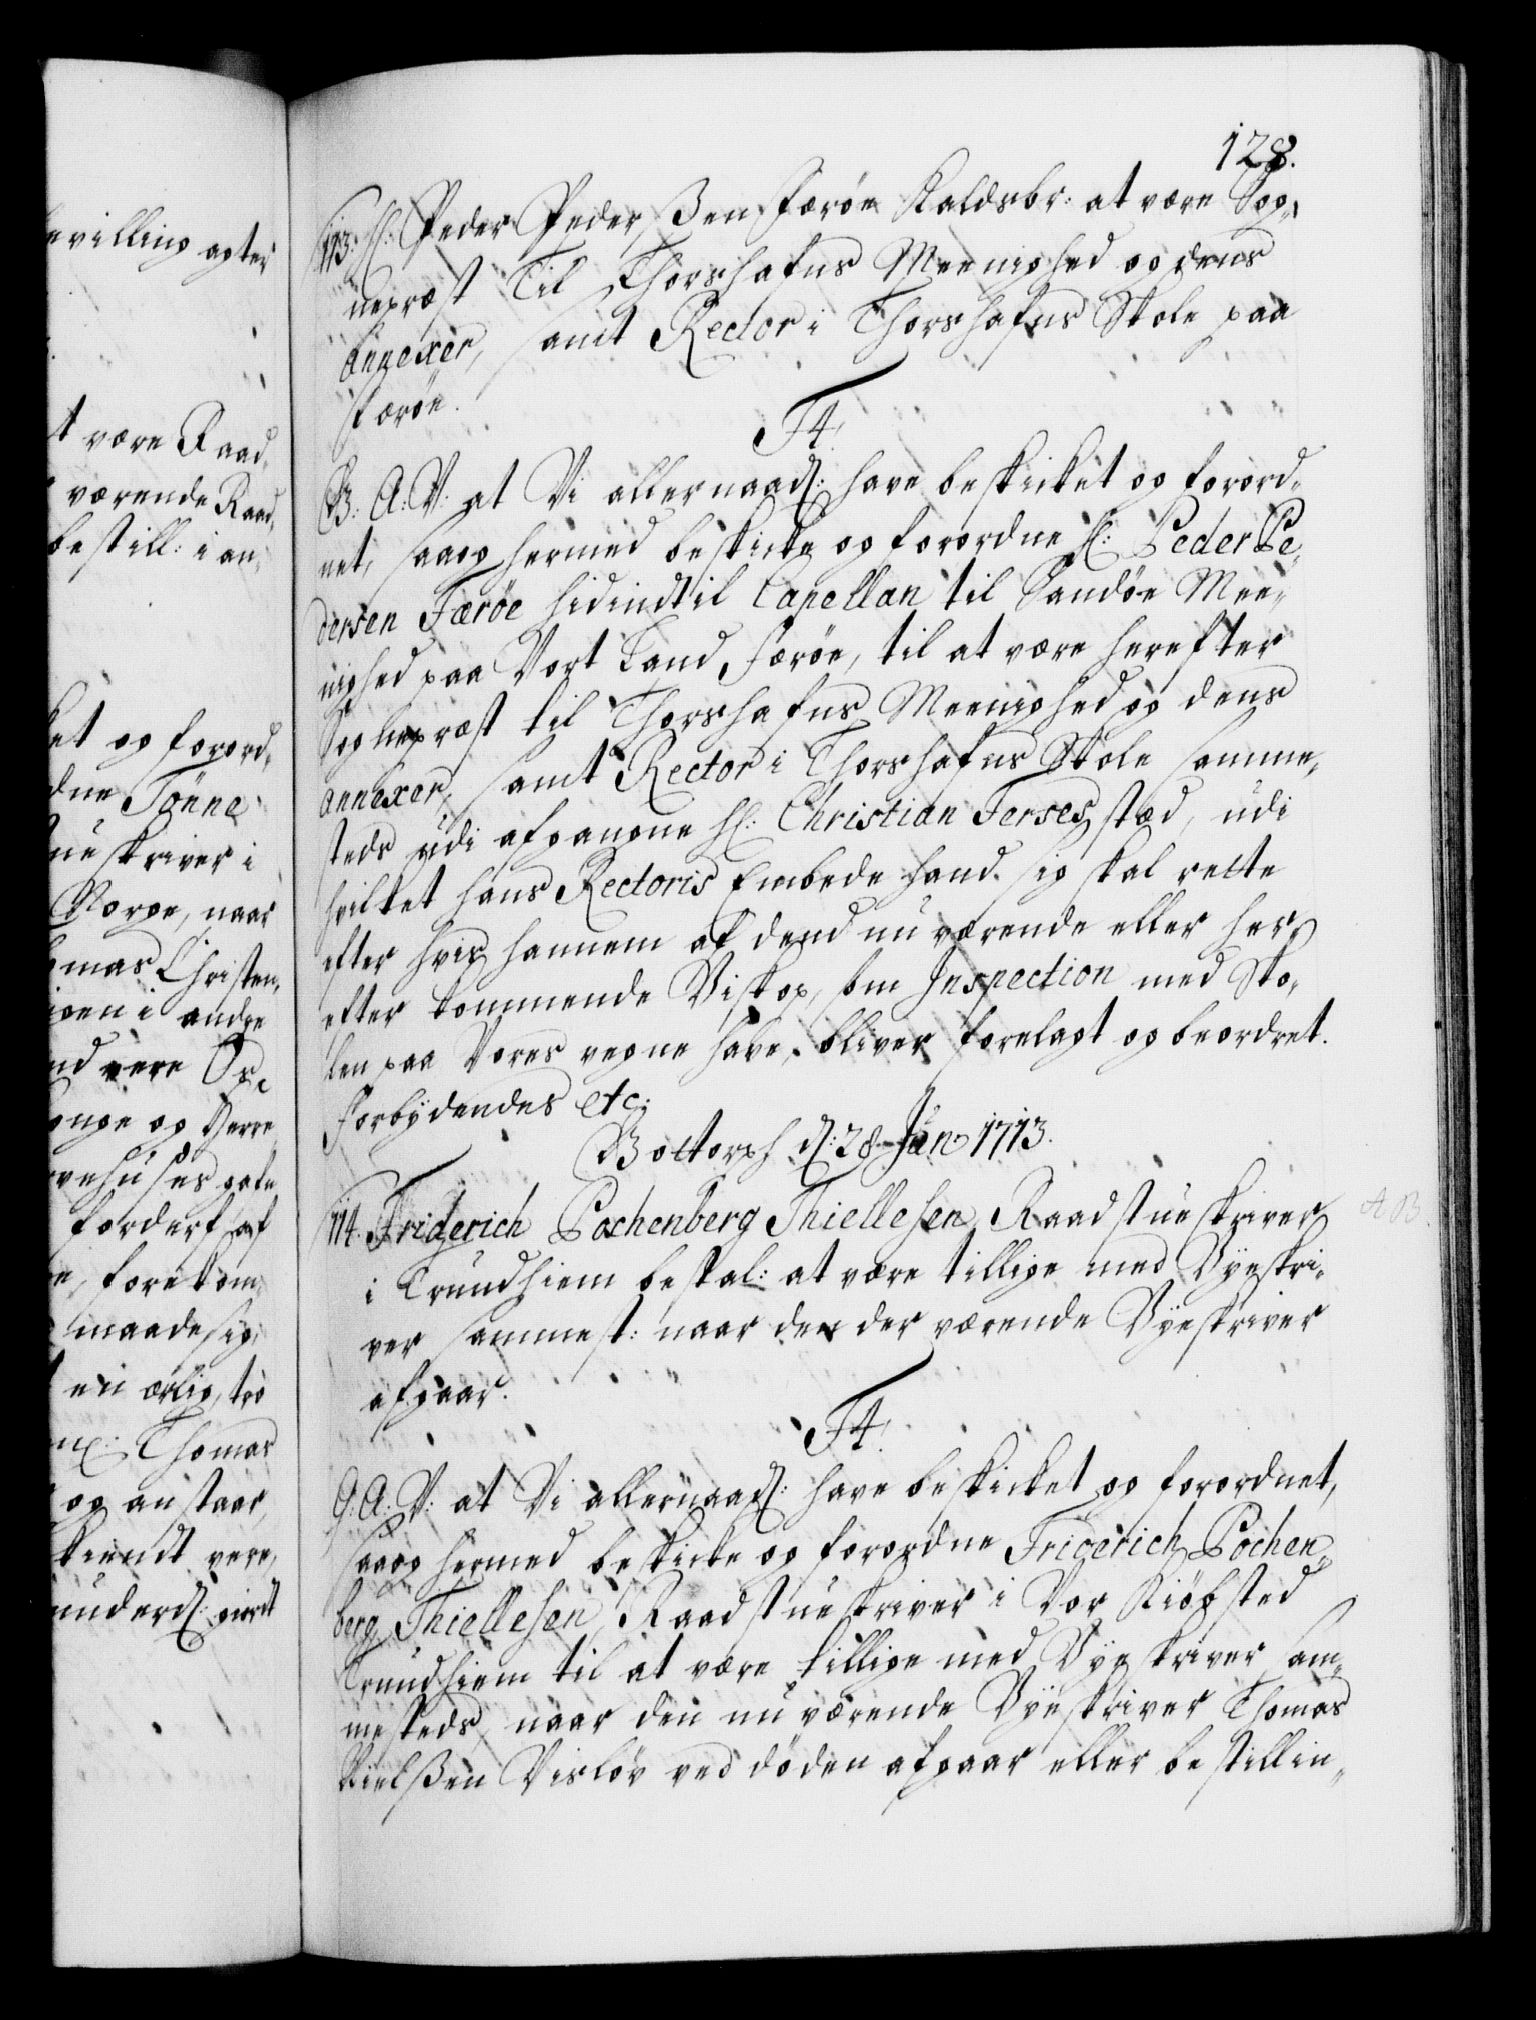 128.
113. Hr: Peder Pederßen Færöe Kaldsbr: at være Sog„
nepræst Til Thorshafns Meenighed og dens
Annexer, samt Rector i Thorshafns Skole paa
Færöe.
F4.
G. A. V. at Vi allernaadl: have beskicket og forord„
net, saaog hermed beskicke og forordne Hr: Peder Pe„
dersen Færöe hidindtil Capellan til Sandöe Mee„
nighed paa Vort Land Færöe, til at være herefter
Sognepræst til Thorshafns Meenighed og dens
annexer, samt Rector i Thorshafns Skole samme„
steds udi afgangne Hr: Christian Ferses stæd, udi
hvilket hans Rectoris Embede hand sig skal rette
efter hvis hannem af dend nu værende eller her
efter kommende Biskop, som Inspection med Sko„
len paa Vores vegne have, bliver forelagt og beordret.
Forbydendes etc:
Gottorph d: 28 Jun: 1713.
114. Friderich Pochenberg Thiellesen Raadstueskriver
i Trundhiem bestal: at være tillige med Byeskri„
ver sammest: naar den der værende Byeskriver
afgaar.
F4.
G. A. V. at Vi allernaadl: have beskicket og forordnet,
saaog hermed beskicke og forordne Friderich Pochen„
berg Thiellesen, Raadstueskriver i Vor Kiöbsted
Trundhiem til at være tillige med Byeskriver sam„
mesteds, naar den nu værende Byeskriver Thomas
Nielßen Visløv ved döden afgaar eller bestillin„
evilling agter
t være Raad„
værende Raad„
bestill: i an„
ket og forord„
dne Tönne
ueskriver i
Norge, naar
omas Christen„
igen i andre
nd være
onge og Herre
vehuses gafn
forderf af
foretom„
maade sig
en ærlig, tro
Thomas
og anstaar,
kiendt være,
underd: giort